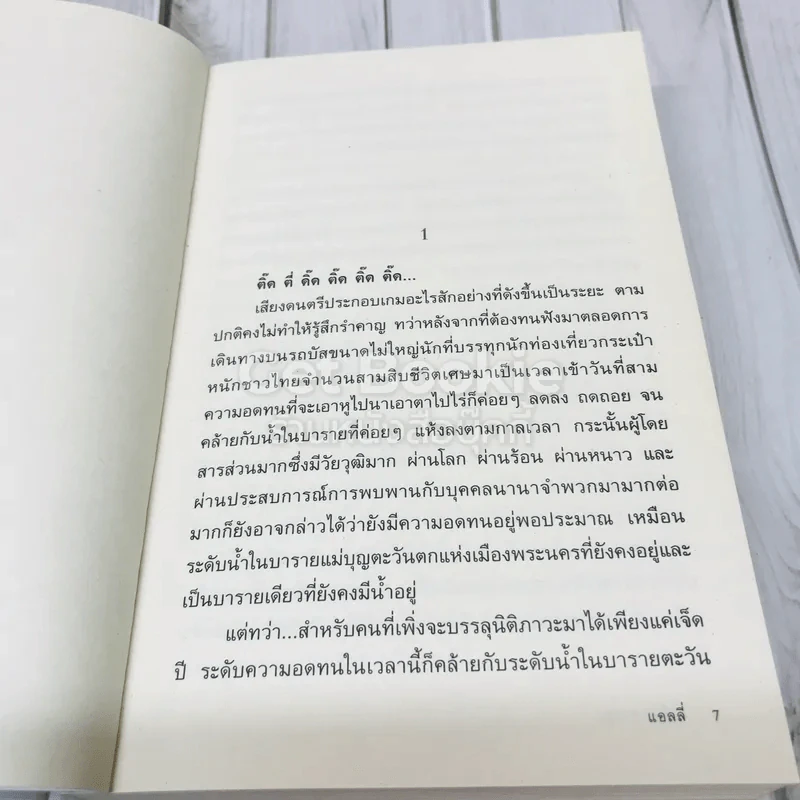 1
ติ๊ด ตี่ ติ๊ด ติ๊ด ติ๊ด ติ๊ด...
เสียงดนตรีประกอบเกมอะไรสักอย่างที่ดังขึ้นเป็นระยะ ตาม
ปกติคงไม่ทำให้รู้สึกรำคาญ ทว่าหลังจากที่ต้องทนฟังมาตลอดการ
เดินทางบนรถบัสขนาดไม่ใหญ่นักที่บรรทุกนักท่องเที่ยวกระเป๋า
หนักชาวไทยจำนวนสามสิบชีวิตเศษมาเป็นเวลาเข้าวันที่สาม
ความอดทนที่จะเอาหูไปนาเอาตาไปไร่ก็ค่อยๆ ลดลง ถดถอย จน
คล้ายกับน้ำในบารายที่ค่อยๆ แห้งลงตามกาลเวลา กระนั้นผู้โดย
สารส่วนมากซึ่งมีวัยวุฒิมาก ผ่านโลก ผ่านร้อน ผ่านหนาว และ
ผ่านประสบการณ์การพบพานกับบุคคลนานาจำพวกมามากต่อ
มากก็ยังอาจกล่าวได้ว่ายังมีความอดทนอยู่พอประมาณ เหมือน
ระดับน้ำในบารายแม่บุญตะวันตกแห่งเมืองพระนครที่ยังคงอยู่และ
เป็นบารายเดียวที่ยังคงมีน้ำอยู่
แต่ทว่า...สำหรับคนที่เพิ่งจะบรรลุนิติภาวะมาได้เพียงแค่เจ็ด
ปี ระดับความอดทนในเวลานี้ก็คล้ายกับระดับน้ำในบารายตะวัน
แอลลี่ 7
Get Bookie